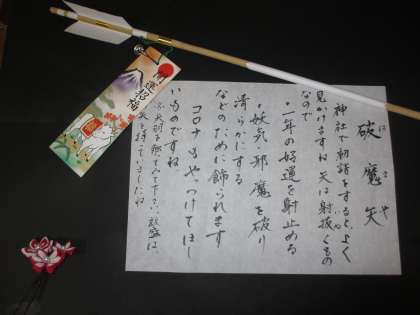 破魔矢
はまや
神社で初詣をするとよく
見かけますね 矢は射抜くもの
なので
・一年の好運を射止める
・妖気、邪魔を破り
清らかにする
などのために飾られます
コロナもやっつけてほし
いものですね
矢を持っていましたね。
開運招福